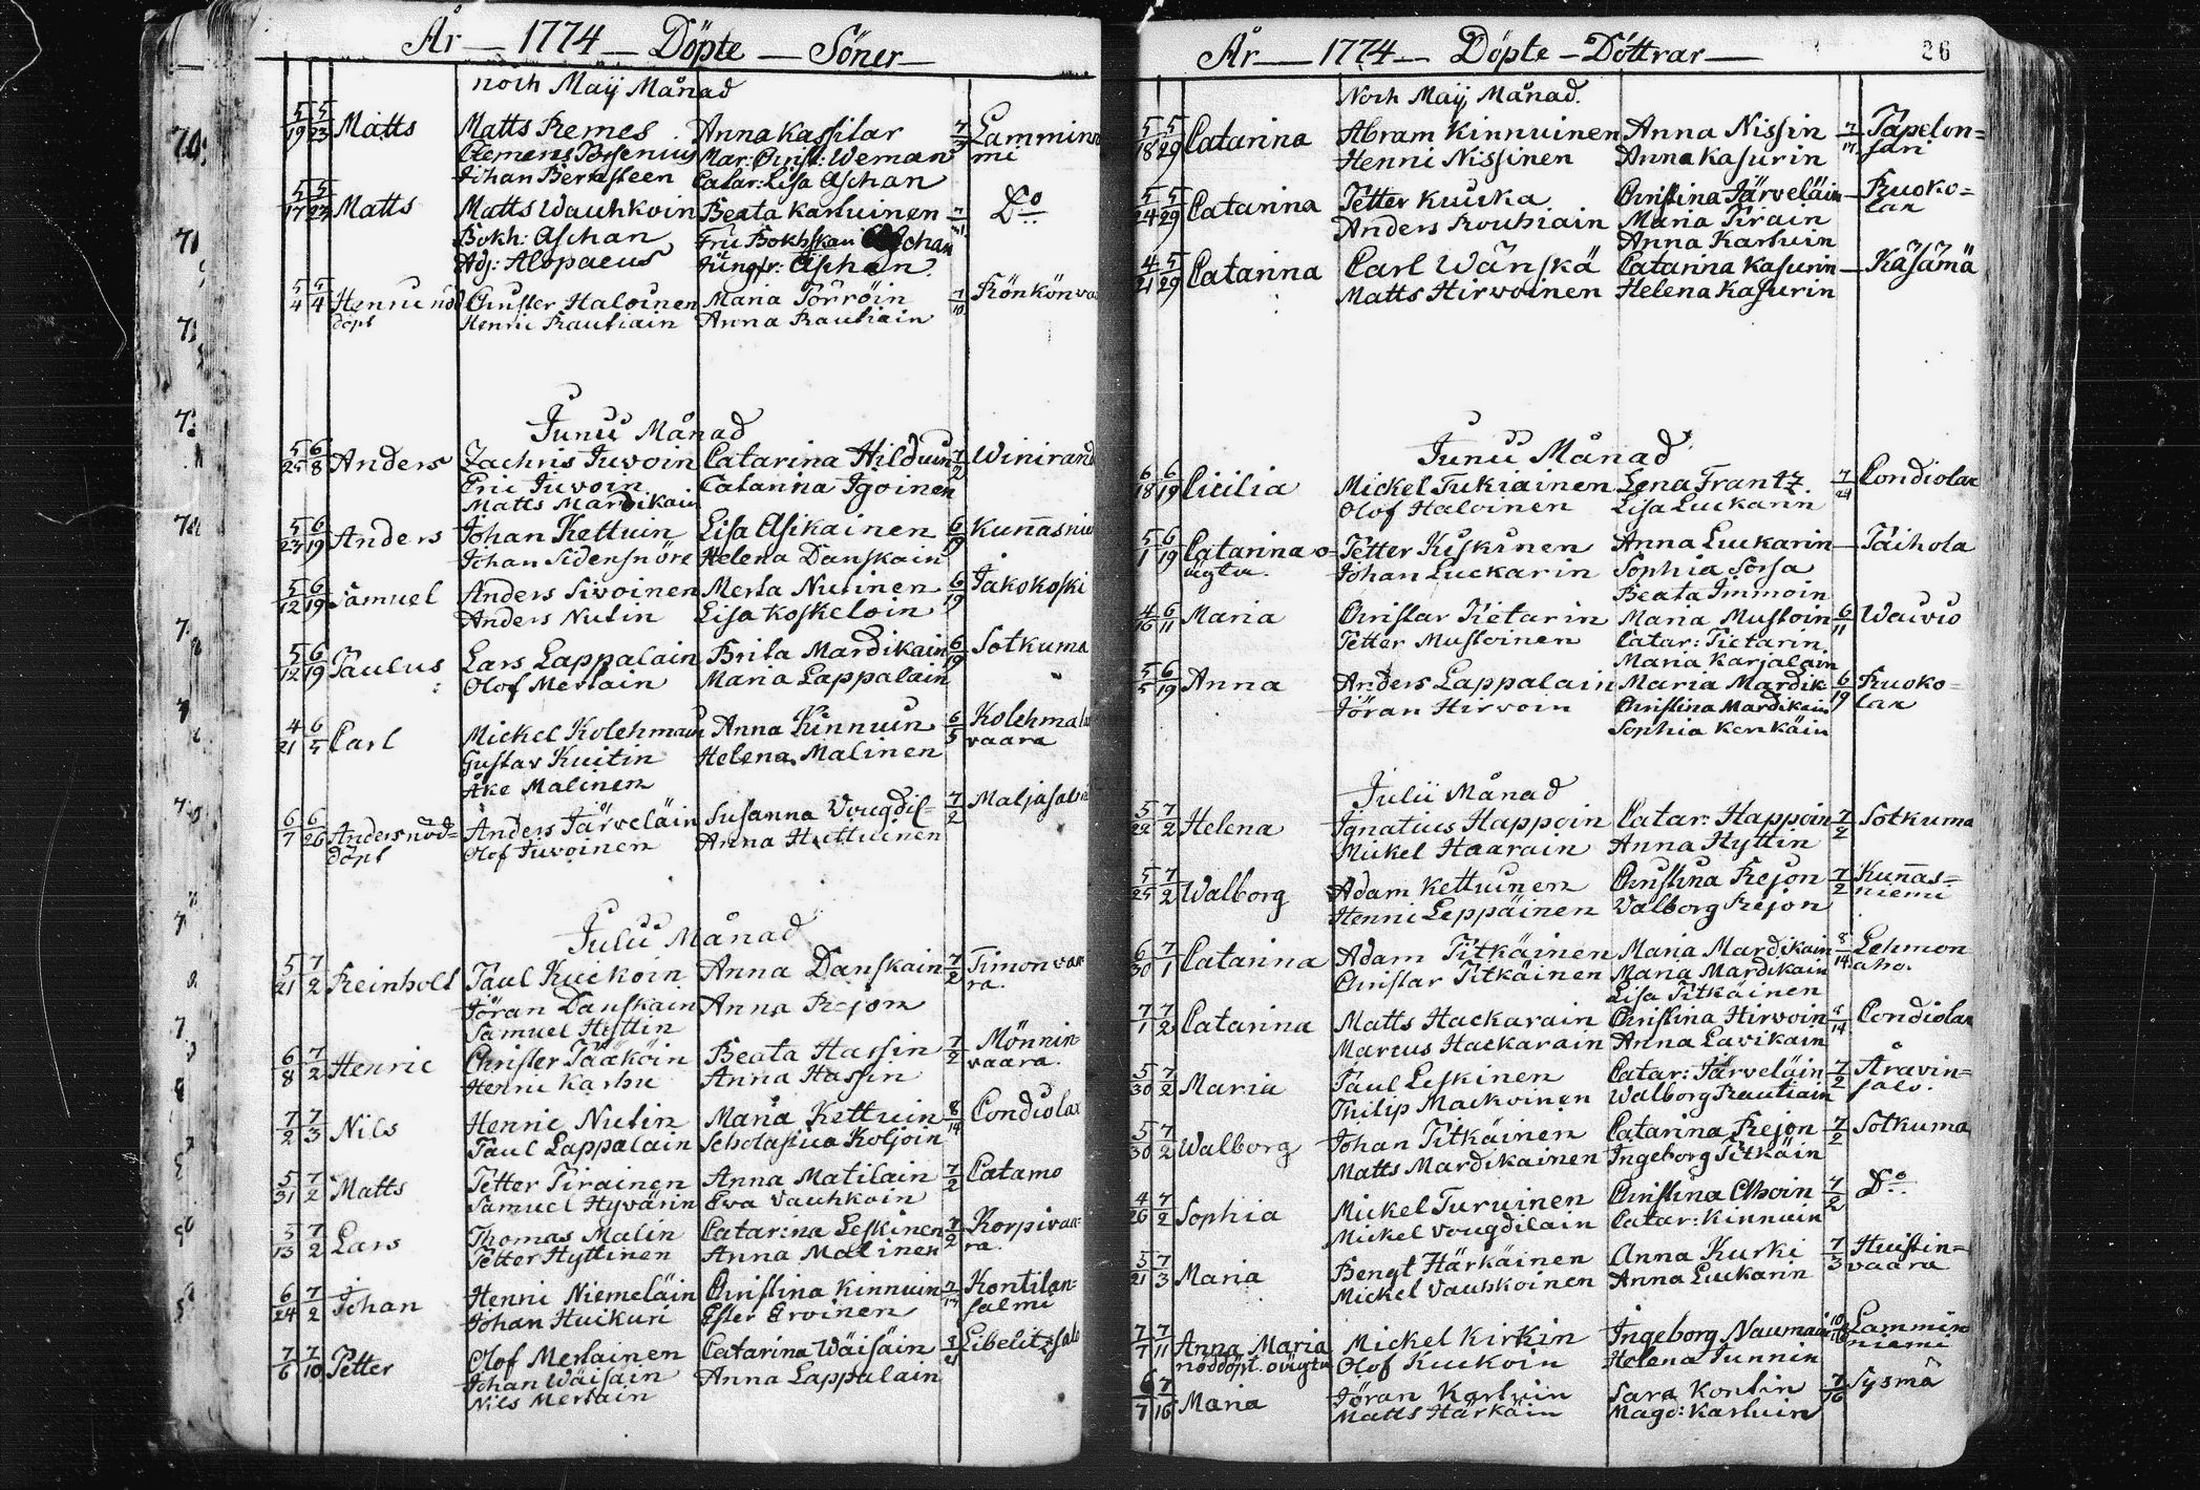 År — 1774 — Döpte — Söner —
noch Maij Månad
5/19 5/23 Matts Matts Remes Anna Kassilar 7/3 Lamminnie
Clemens Mar: Christ: Weman mi
Johan Catar: Lisa Aschan
5/17 5/23 Matts Matts Wauhkoin Beata Karhuinen D:o
Bokh: Aschan Fru Bokhskan Aschan
Adj: Alopaeus Jungfr: Aschan
5/4 5/4 Henric nöd Christer Haloinen Maria Törröin 7/10 Rönkönva
döpt Henric Rautiain Anna Rautiain
Junii Månad
5/25 6/8 Anders Zachris Juvoin Catarina Hilduin 7/2 Winirand
Eric Juvoin Catarina Igoinen
Matts Mardikain
5/23 6/19 Anders Johan Kettuin Lisa Asikainen 6/19 Kunnasnie
Johan Sidensnöre Helena Danskain
5/12 6/19 Samuel Anders Sivoinen Merta Nutinen 6/19 Jakokoski
Anders Nutin Lisa Koskeloin
5/12 6/19 Paulus Lars Lappalain Brita Mardikain 6/19 Sotkuma
Olof Mertain Maria Lappalain
4/21 6/5 Carl Mickel Kolehmain Anna Kinnuin 6/5 Kolehmala
Gustav Kuitin Helena Malinen vaara
Åke Malinen
6/7 6/26 Anders nöd= Anders Järveläin Susanna Vougdil= 7/2 Maljasals
döpt Olof Juvoinen Anna Huttuinen
Julii Månad
5/21 7/2 Reinholt Paul Kuikoin Anna Danskain 7/2 Timonvaa
Jöran Danskain Anna Rejon ra.
Samuel Hyttin
6/8 7/2 Henric Christer Pääköin Beata Hassin 7/2 Mönnin=
Henric Karhu Anna Hassin vaara.
7/2 7/3 Nils Henric Nutin Maria Kettuin 8/14 Condiolax
Paul Lappalain Scholastica Koljoin
5/31 7/2 Matts Petter Pirainen Anna Matilain 7/2 Catamo
Samuel Hyvärin Ewa Vauhkoin
5/13 7/2 Lars Thomas Malin Catarina Leskinen 7/2 Korpivaa=
Petter Hyttinen Anna Malinen ra.
6/24 7/2 Johan Henric Niemeläin Christina Kinnuin Kontilan=
Johan Huikuri Ester Ervinen salmi
7/6 7/10 Petter Olof Mertainen Catarina Wäisäin Libelitzsalo
Johan Wäisäin Anna Lappalain
Nils Mertain
År — 1774 — Döpte — Döttrar — 26
Noch Maij Månad.
5/18 5/29 Catarina Abram Kinnuinen Anna Nissin Papelon=
Henric Nissinen Anna Kasurin sari
5/24 5/29 Catarina Petter Kuiska Christina Järveläin — Ruoko=
Anders Rouhiain Maria Pirain lax
Anna Karhuin
4/21 5/29 Catarina Carl Wänskä Catarina Kasurin — Käsämä
Matts Hirvoinen Helena Kasurin
Junii Månad
6/18 6/19 Cicilia Mickel Tukiainen Lena Frantz 7/24 Condiolax
Olof Haloinen Lisa Luckarin
5/1 6/19 Catarina o= Petter Kiskinen Anna Luckarin — Paihola
ägta. Johan Luckarin Sophia Sorsa
Beata Immoin
4/16 6/11 Maria Christar Pietarin Maria Mustoin 6/11 Waivio
Petter Mustoinen Catar: Pietarin
Maria Karjalain
5/5 6/19 Anna Anders Lappalain Maria Mardik 6/19 Ruoko=
Jöran Hirvoin Christina Mardikain lax
Sophia Kenkäin
Julii Månad
5/22 7/2 Helena Ignatius Happoin Catar: Happoin 7/2 Sotkuma
Mickel Haarain Anna Hyttin
5/25 7/2 Walborg Adam Kettuinen Christina Rejon 7/2 Kunnas=
Henric Leppäinen Walborg Rejon niemi
6/30 7/1 Catarina Adam Pitkäinen Maria Mardikain 8/14 Lehmon
Christar Pitkäinen Maria Mardikain aho.
Lisa Pitkäinen
7/1 7/2 Catarina Matts Hackarain Christina Hirvoin 8/14 Condiolax
Marcus Hackarain Anna Lavikain
5/30 7/2 Maria Paul Leskinen Catar: Järveläin 7/2 Åravin=
Philip Mackoinen Walborg Rautiain salo.
5/30 7/2 Walborg Johan Pitkäinen Catarina Rejon 7/2 Sotkuma
Matts Mardikainen Ingeborg Pitkäin
4/26 7/2 Sophia Mickel Turuinen Christina Ethoin 7/2 D:o
Mickel Vougdilain Catar: Kinnuin
5/21 7/3 Maria Bengt Härkäinen Anna Kurki 7/3 Huistin=
Mickel Vauhkoinen Anna Luckarin vaara
7/7 7/11 Anna Maria Mickel Kirkin Ingeborg Naumain Lammin
nöddöpt. oägta Olof Kuckoin Helena Tunnin niemi
6/7 7/16 Maria Jöran Karhuin Sara Kontin 7/16 Sysmä
Matts Härkäin Magd: Karhuin